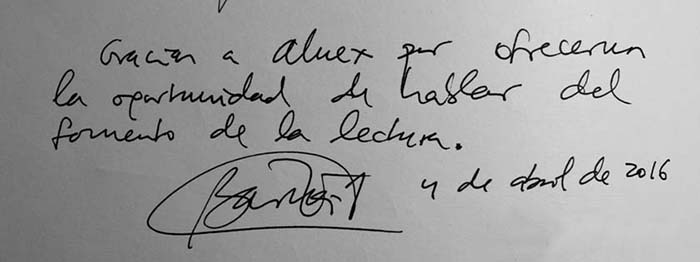 Gracias a aluex por ofrecerun
la oportunidad de hablar del
fomento de la lectura.
4 de abril de 2016